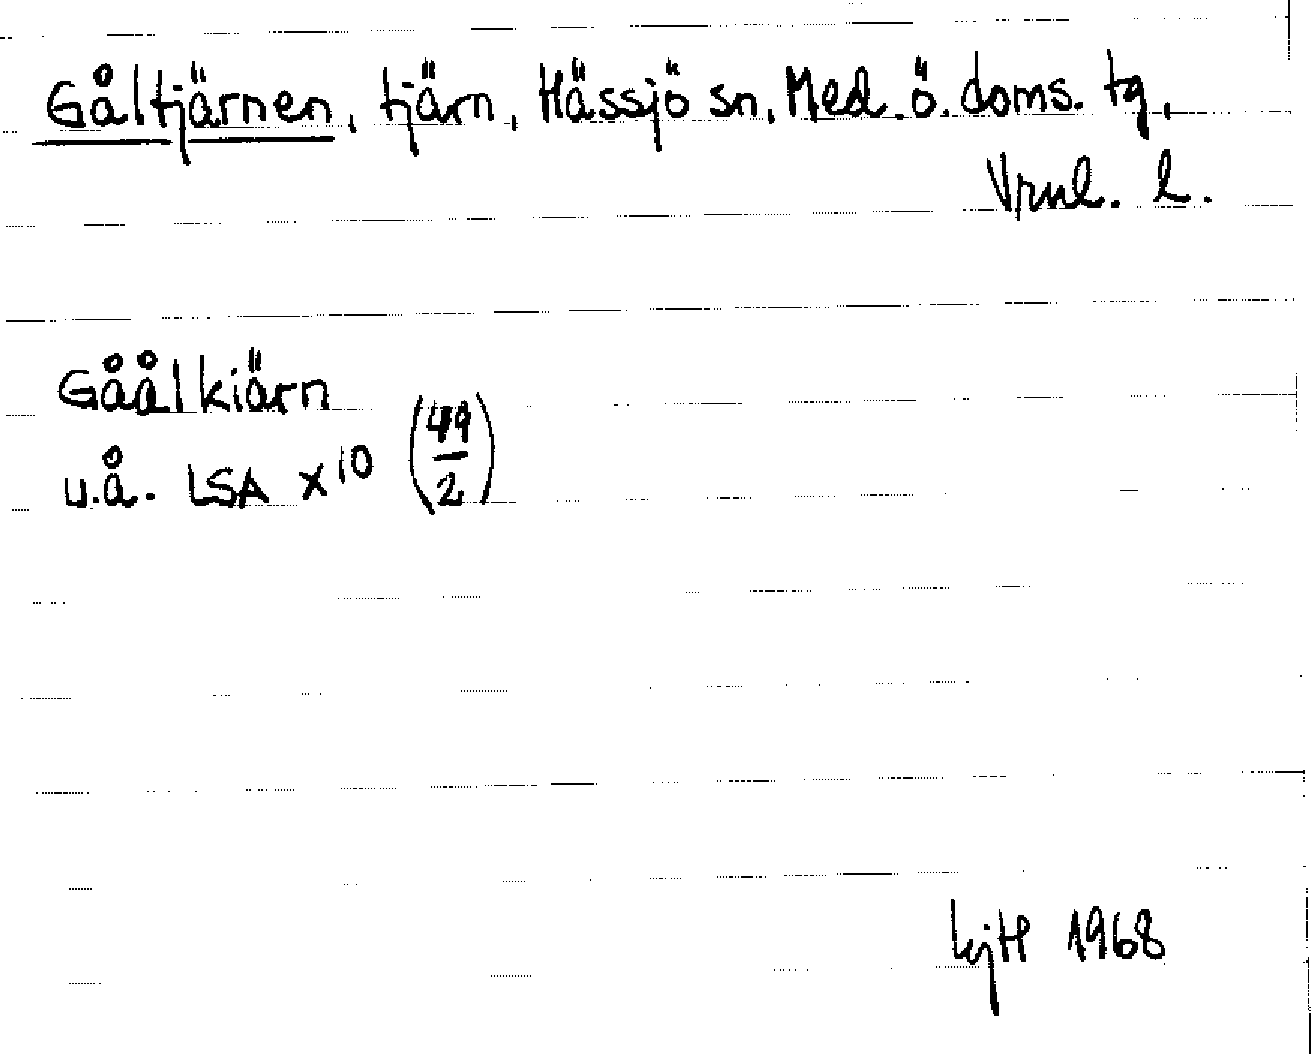 Gåltjärnen, tjärn, Hässjö sn, Med. ö. doms. tg,
Vrnl. l.
Gåålkiärn
u.å. LSA X¹⁰ (49/2)
1968